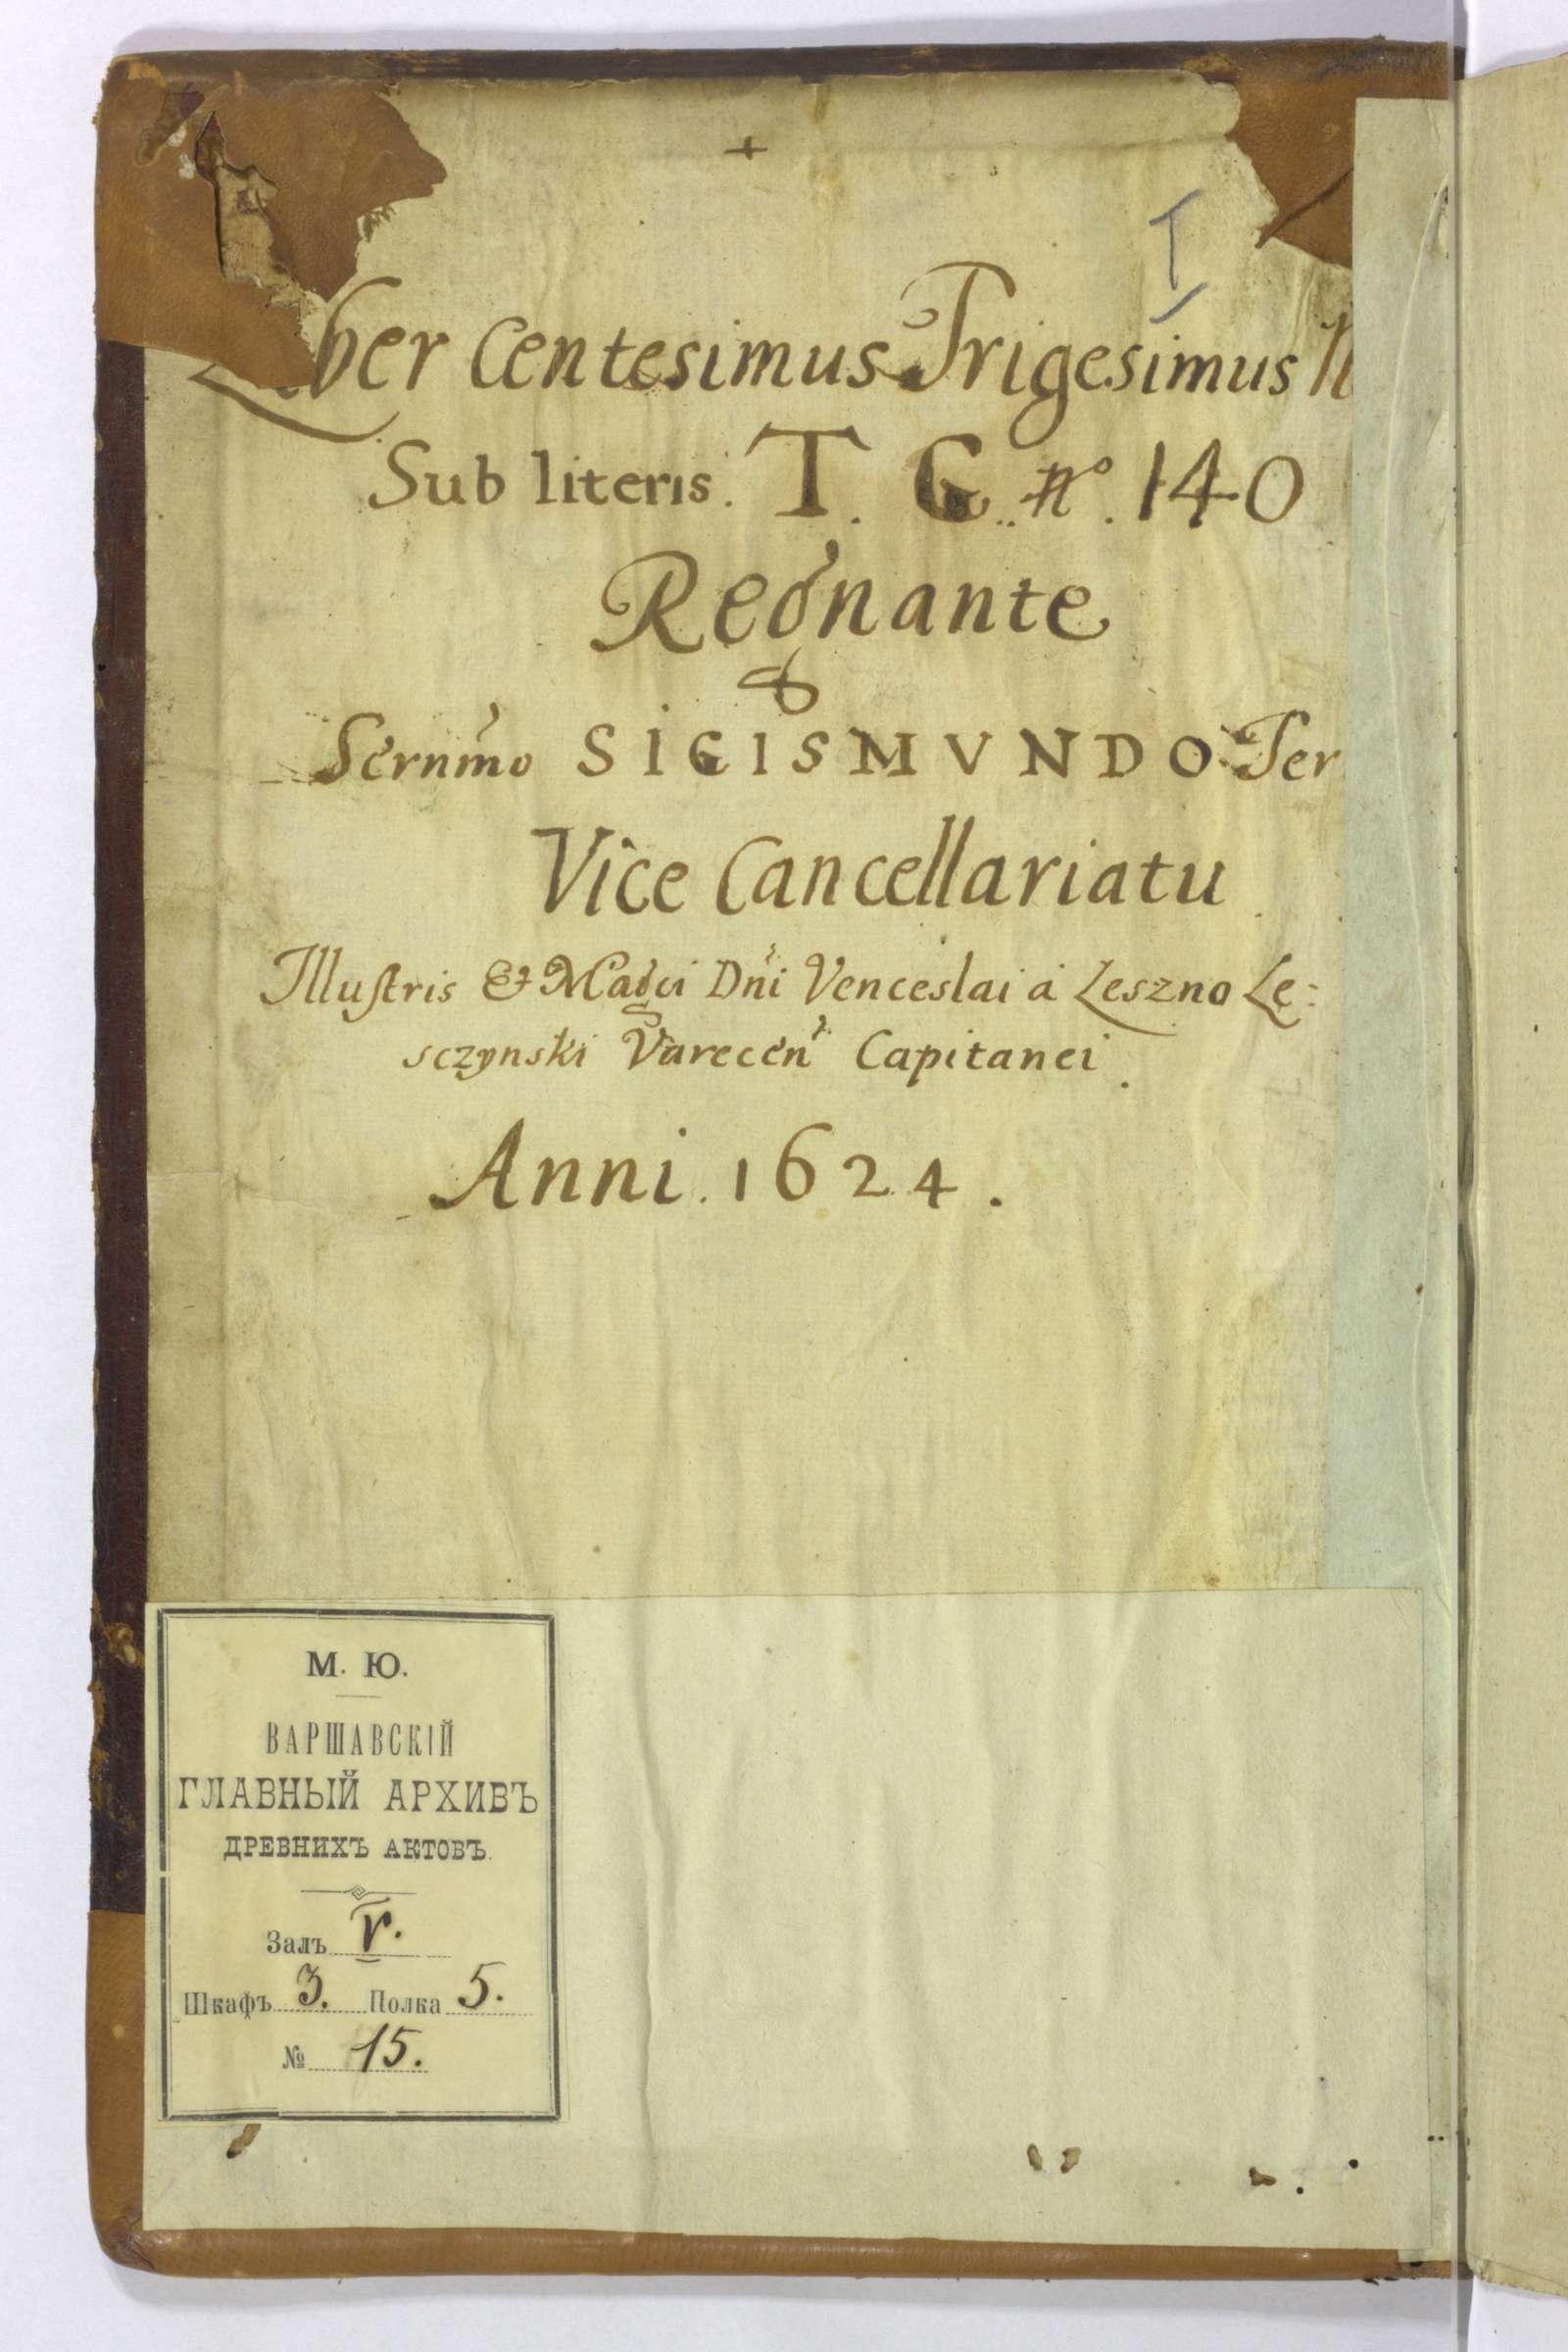 I
Liber Centesimus Trigesimus N
Sub literis. T. G. nº. 140
Regnante
Sernmo SIGISMVNDO Ter
Vice Cancellariatu
Illustris & Magci Dni Venceslai á Leszno Le:
sczynski Varecen Capitanei.
Anni. 1624.
М. Ю.
ВАРШАВСКІЙ
ГЛАВНЫЙ АРХИВЪ
ДРЕВНИХЪ АКТОВЪ.
Залъ V.
Шкафъ 3. Полка 5.
№ 15.